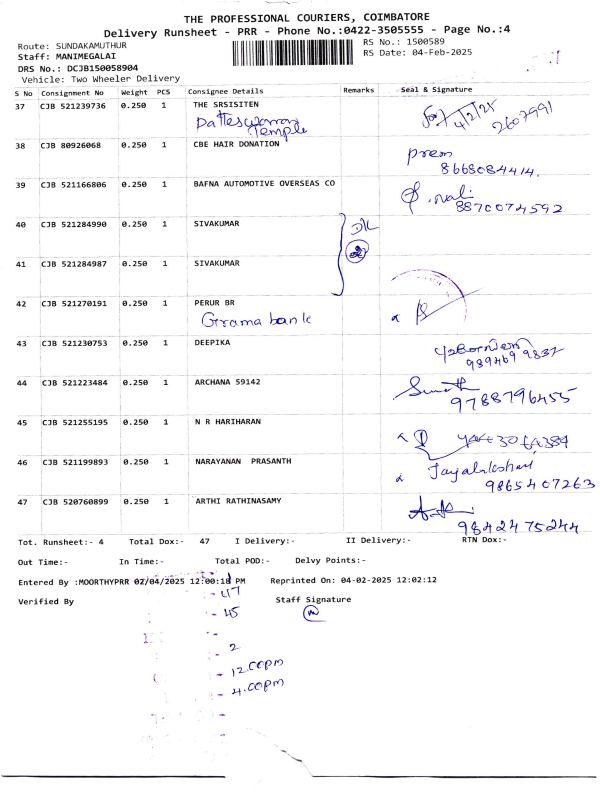 THE PROFESSIONAL COURIERS, COIMBATORE
Delivery Runsheet - PRR - Phone No.:0422-3505555 - Page No.:4
Route: SUNDAKAMUTHUR
RS No.: 1500589
Staff: MANIMEGALAI
RS Date: 04-Feb-2025
DRS No.: DCJB150058904
Vehicle: Two Wheeler Delivery
S No Consignment No Weight PCS Consignee Details Remarks Seal & Signature
37 CJB 521239736 0.250 1 THE SRSISITEN
Temple
4/2/25 2607991
38 CJB 80926068 0.250 1 CBE HAIR DONATION
prem
8668084414.
39 CJB 521166806 0.250 1 BAFNA AUTOMOTIVE OVERSEAS CO
8870074592
40 CJB 521284990 0.250 1 SIVAKUMAR
DL
2
41 CJB 521284987 0.250 1 SIVAKUMAR
42 CJB 521270191 0.250 1 PERUR BR
Grama bank
43 CJB 521230753 0.250 1 DEEPIKA
989469 9837
44 CJB 521223484 0.250 1 ARCHANA 59142
9788796455
45 CJB 521255195 0.250 1 N R HARIHARAN
46 CJB 521199893 0.250 1 NARAYANAN PRASANTH
9865407263
47 CJB 520760899 0.250 1 ARTHI RATHINASAMY
9842475244
Tot. Runsheet:- 4 Total Dox:- 47 I Delivery:- II Delivery:- RTN Dox:-
Out Time:- In Time:- Total POD:- Delvy Points:-
Entered By :MOORTHYPRR 02/04/2025 12:00:18 PM Reprinted On: 04-02-2025 12:02:12
- 47
Verified By Staff Signature
- 45
- 2
- 12.00pm
- 4.00pm